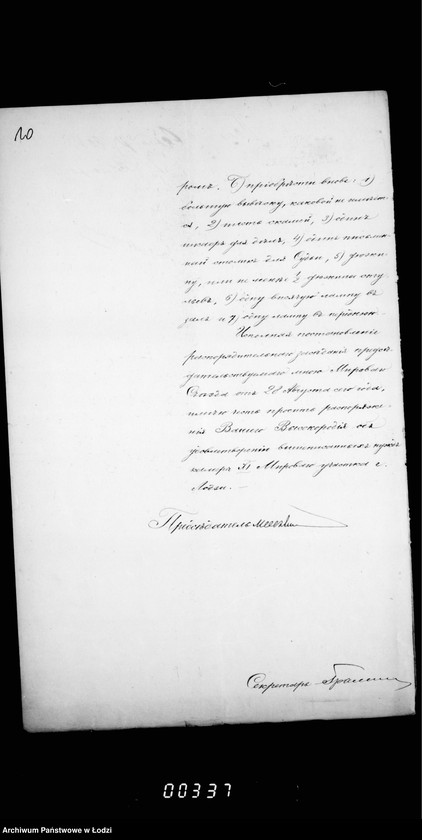 20
ромъ. Б) пріобрѣсти вновь: 1)
большую вывѣску, каковой не имѣет-
ся, 2) шесть скамей, 3) одинъ
шкафъ для дѣлъ, 4) одинъ письмен-
ный столикъ для Судьи, 5) дюжи-
ну, или не менѣе ½ дюжины сту-
льевъ, 6) одну висячую лампу въ
залъ и 7) одну лампу въ пріемную
Исполняя постановленіе
распорядительнаго засѣданія предсѣ-
дательствуемаго мною Мироваго
Съѣзда отъ 28 Августа сего года,
имѣю честь просить распоряже-
нія Вашего Высокородія объ
удовлетвореніи вышеписанныхъ нуждъ
камеры Мироваго участка г.
Лодзи. —
Предсѣдатель
Секретарь
00337
Archiwum Państwowe w Łodzi